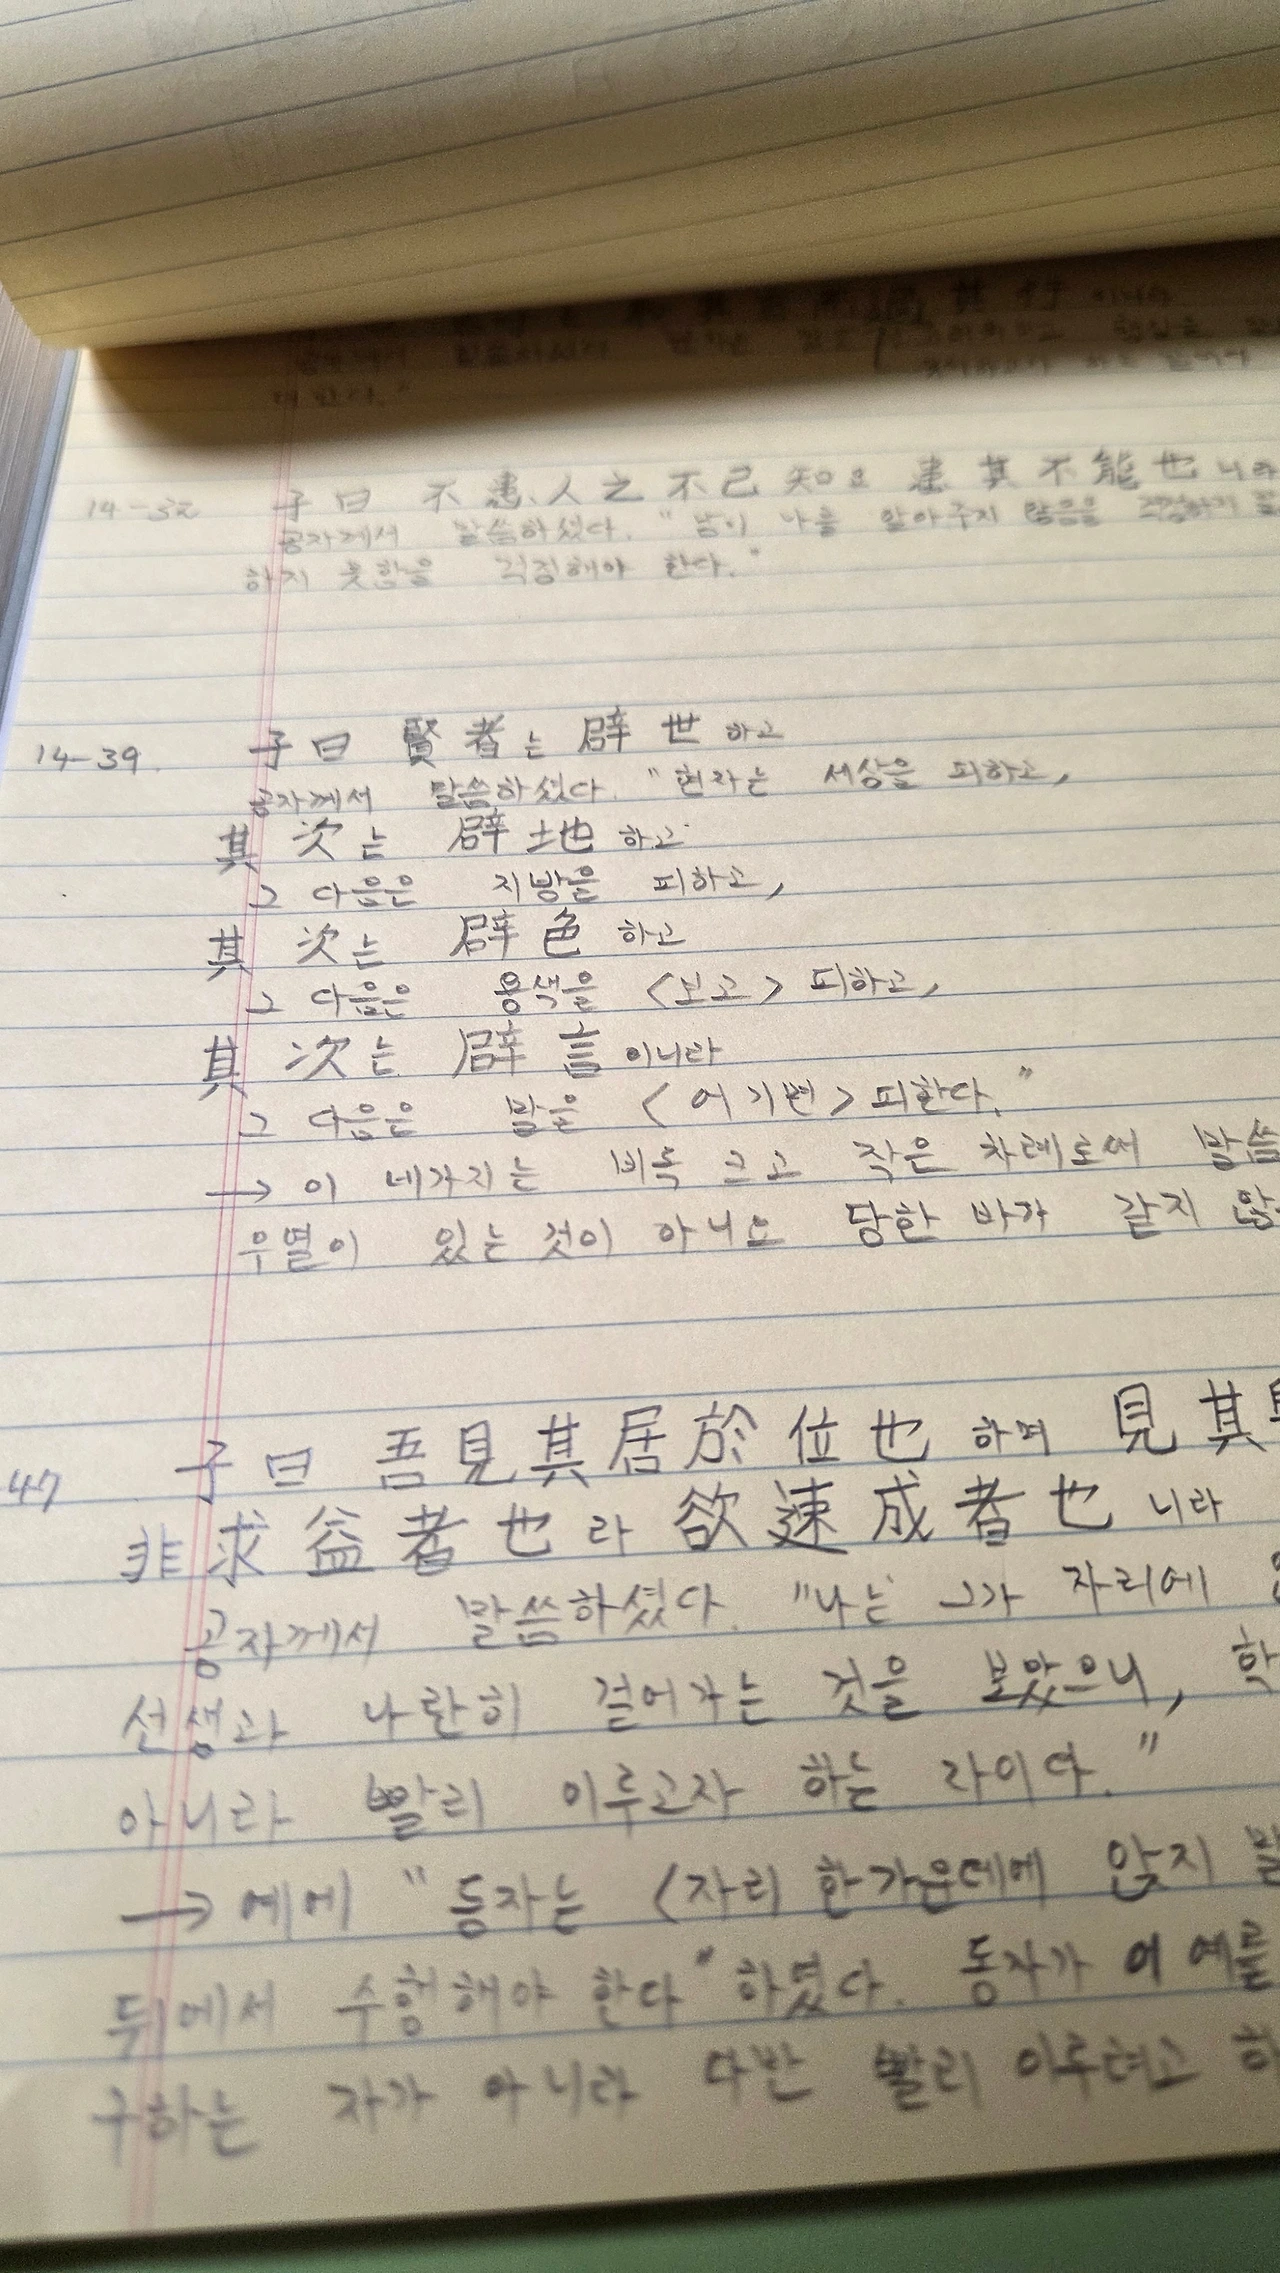 其行
대 한다."
14-32 子曰 不患人之不己知오 患其不能也니라
공자께서 말씀하셨다. "남이 나를 알아주지 않음을 걱정하지
하지 못함을 걱정해야 한다."
14-39. 子曰 賢者는 辟世하고
공자께서 말씀하셨다. "현자는 세상을 피하고,
其次는 辟地하고
그 다음은 지방을 피하고,
其次는 辟色하고
그 다음은 용색을 <보고> 피하고,
其次는 辟言이니라
그 다음은 말을 <어기면> 피한다."
→ 이 네가지는 비록 크고 작은 차례로써 말씀
우열이 있는 것이 아니오 당한 바가 같지 않
47 子曰 吾見其居於位也하며 見其
非求益者也라 欲速成者也니라
공자께서 말씀하셨다. "나는 그가 자리에
선생과 나란히 걸어가는 것을 보았으니, 학
아니라 빨리 이루고자 하는 라이다."
→ 예에 "동자는 <자리 한가운데에 앉지 말
뒤에서 수행해야 한다" 하였다. 동자가 이 예를
구하는 자가 아니라 다만 빨리 이루려고 하